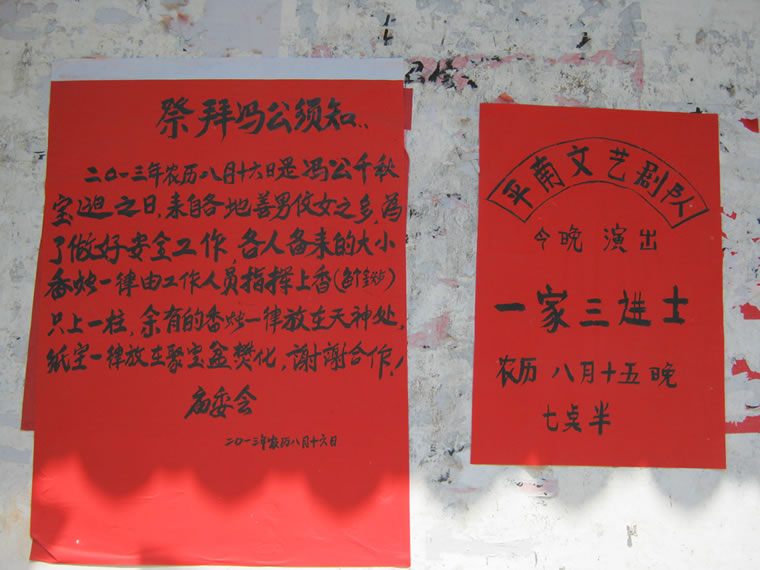 祭拜冯公须知..
二〇一三年农历八月十六日是冯公千秋
宝诞之日，来自各地善男佼女之多，为
了做好安全工作，各人备来的大小
香烛一律由工作人员指挥上香（
只上一柱，余有的香烛一律放在天神处，
纸宝一律放在聚宝盆焚化，谢谢合作！
庙委会
二〇一三年农历八月十六日
平南文艺剧队
今晚 演出
一家三进士
农历 八月十五晚
七点半